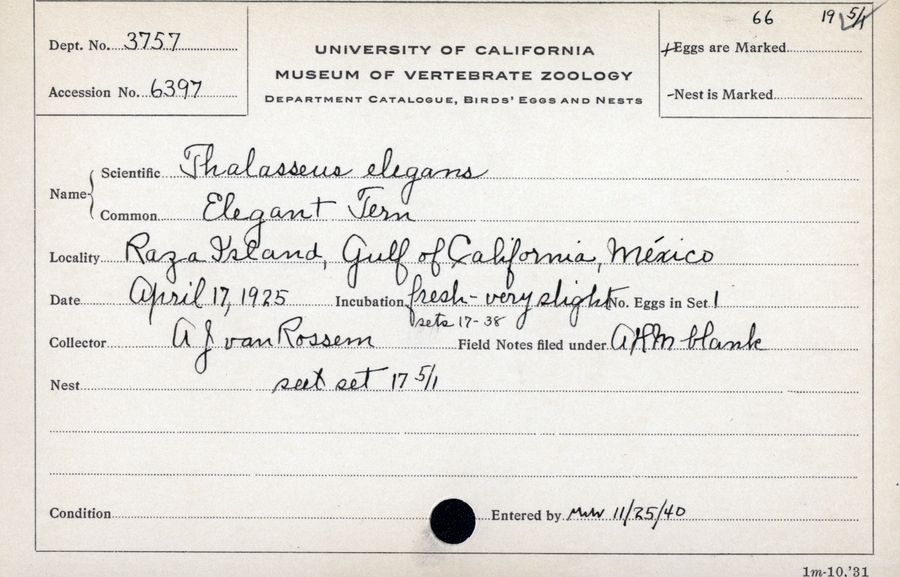 66 19 5/1
Dept. No. 3757
UNIVERSITY OF CALIFORNIA
+Eggs are Marked
MUSEUM OF VERTEBRATE ZOOLOGY
Accession No. 6397
DEPARTMENT CATALOGUE, BIRDS' EGGS AND NESTS
-Nest is Marked
Name
Scientific Thalasseus elegans
Common Elegant Tern
Locality Raza Island, Gulf of California, México
Date April 17, 1925 Incubation fresh - very slight No. Eggs in Set 1
sets 17-38
Collector A J van Rossem Field Notes filed under AHM blank
Nest set 17 5/1
Condition Entered by 11/25/40
1m-10,'31